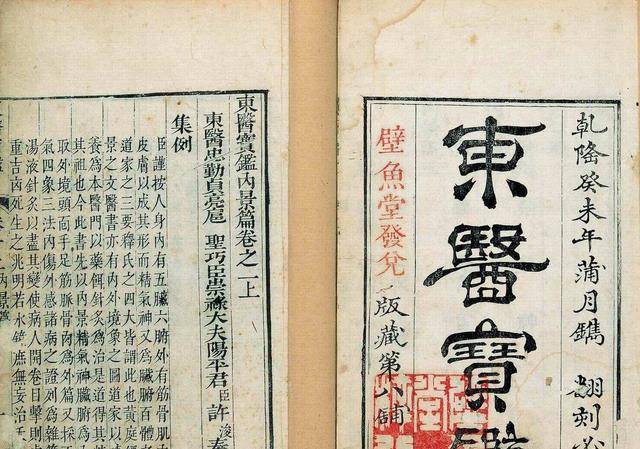 乾隆癸未年蒲月鐫 翻刻必
東醫寶鑑
壁魚堂發兌
版藏第八鋪
東醫寶鑑內景篇卷之一上
東醫忠勤貞亮扈 聖巧臣崇祿大夫陽平君臣許浚奉
集例
臣謹按人身內有五臟六腑外有筋骨肌
皮膚以成其形而精氣神又爲臟腑百體
道家之三要釋氏之四大皆謂此也黃庭經
景之文醫書亦有內外境象之圖道家以
養爲本醫門以藥餌針灸爲治是道得其
其祖也今此書先以內景精氣神臟腑爲
取外境頭面手足筋脉骨肉爲外篇又採
氣四象三法內傷外感諸病之證列爲雜
湯液針灸以盡其變使病人開卷目擊則
重吉凶死生之兆明若水鏡庶無妄治夭